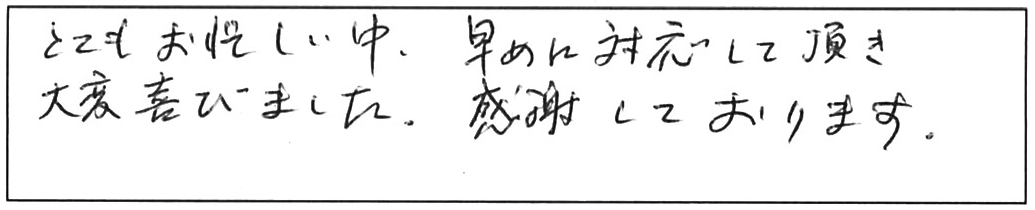 とてもお忙しい中、早めに対応して頂き
大変喜びました。感謝しております。